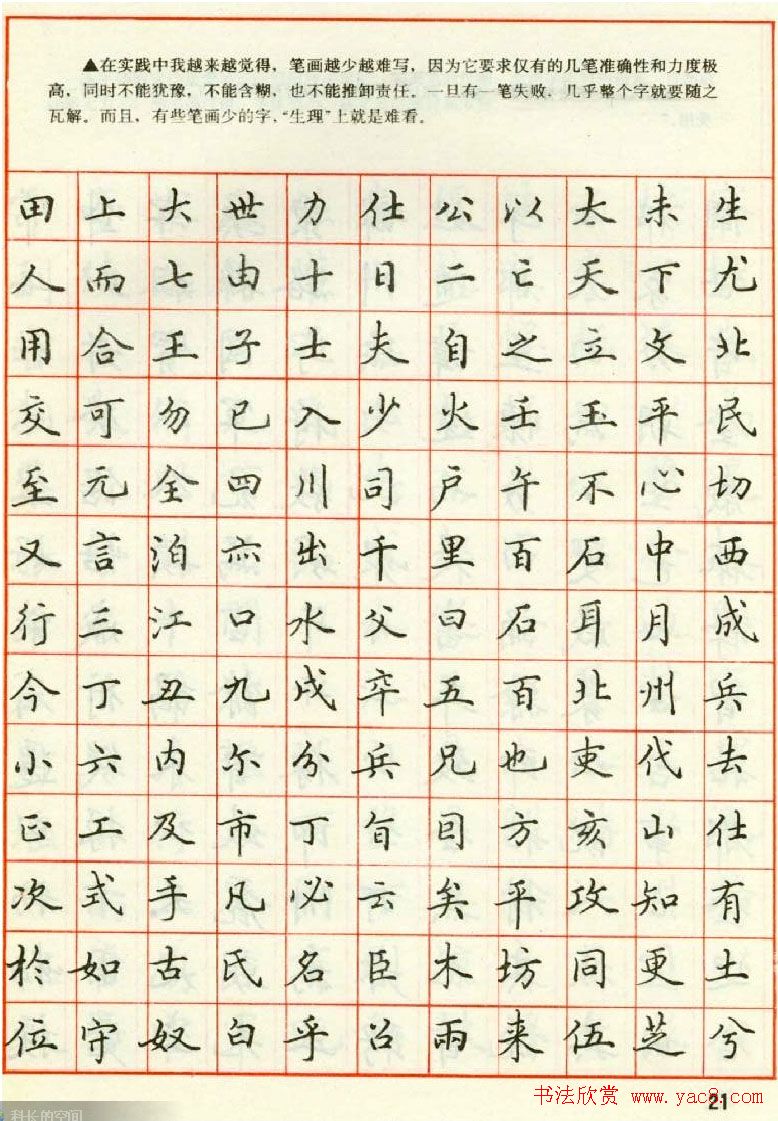 ▲在实践中我越来越觉得，笔画越少越难写，因为它要求仅有的几笔准确性和力度极
高，同时不能犹豫，不能含糊，也不能推卸责任。一旦有一笔失败，几乎整个字就要随之
瓦解。而且，有些笔画少的字，“生理”上就是难看。
田上大世力仕公以太未生
人而七由十日二亡天下尤
用合王子士夫自之立文北
交可勿已入少火壬玉平民
至元全四川司户午不心切
又言泊亦出千里百石中西
行三江口水父曰石耳月成
今丁丑九戍卒五百北州兵
小六内尔分兵兄也吏代去
正工及市丁旨目方亥山仕
次式手凡必云矣平攻知有
於如古氏名臣木坊同更土
位守奴白乎召雨来伍芝兮
书法欣赏 www.yac8.com
21
科长的空间